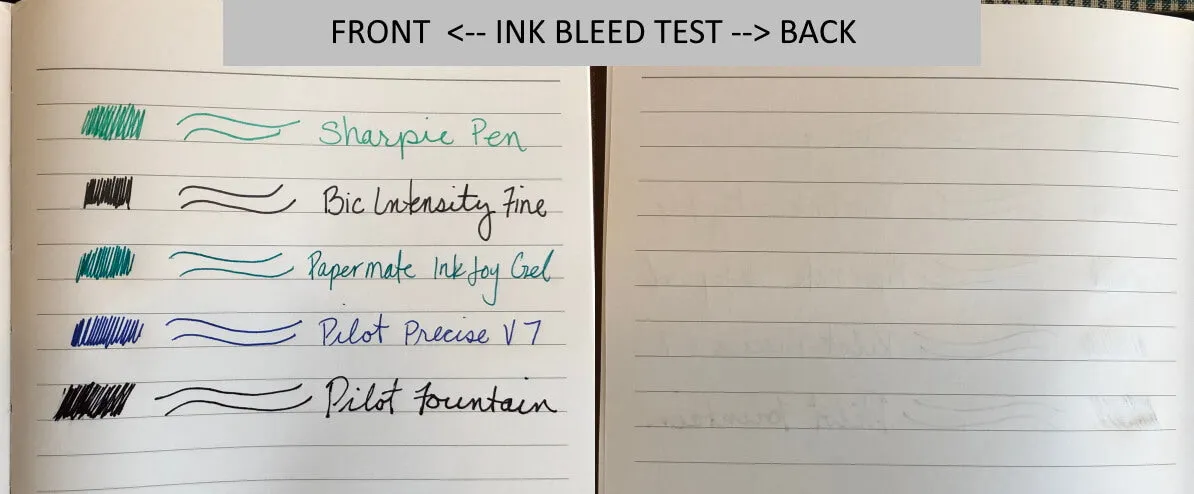 FRONT <-- INK BLEED TEST --> BACK
Sharpie Pen
Bic Intensity Fine
Papermate InkJoy Gel
Pilot Precise V7
Pilot Fountain